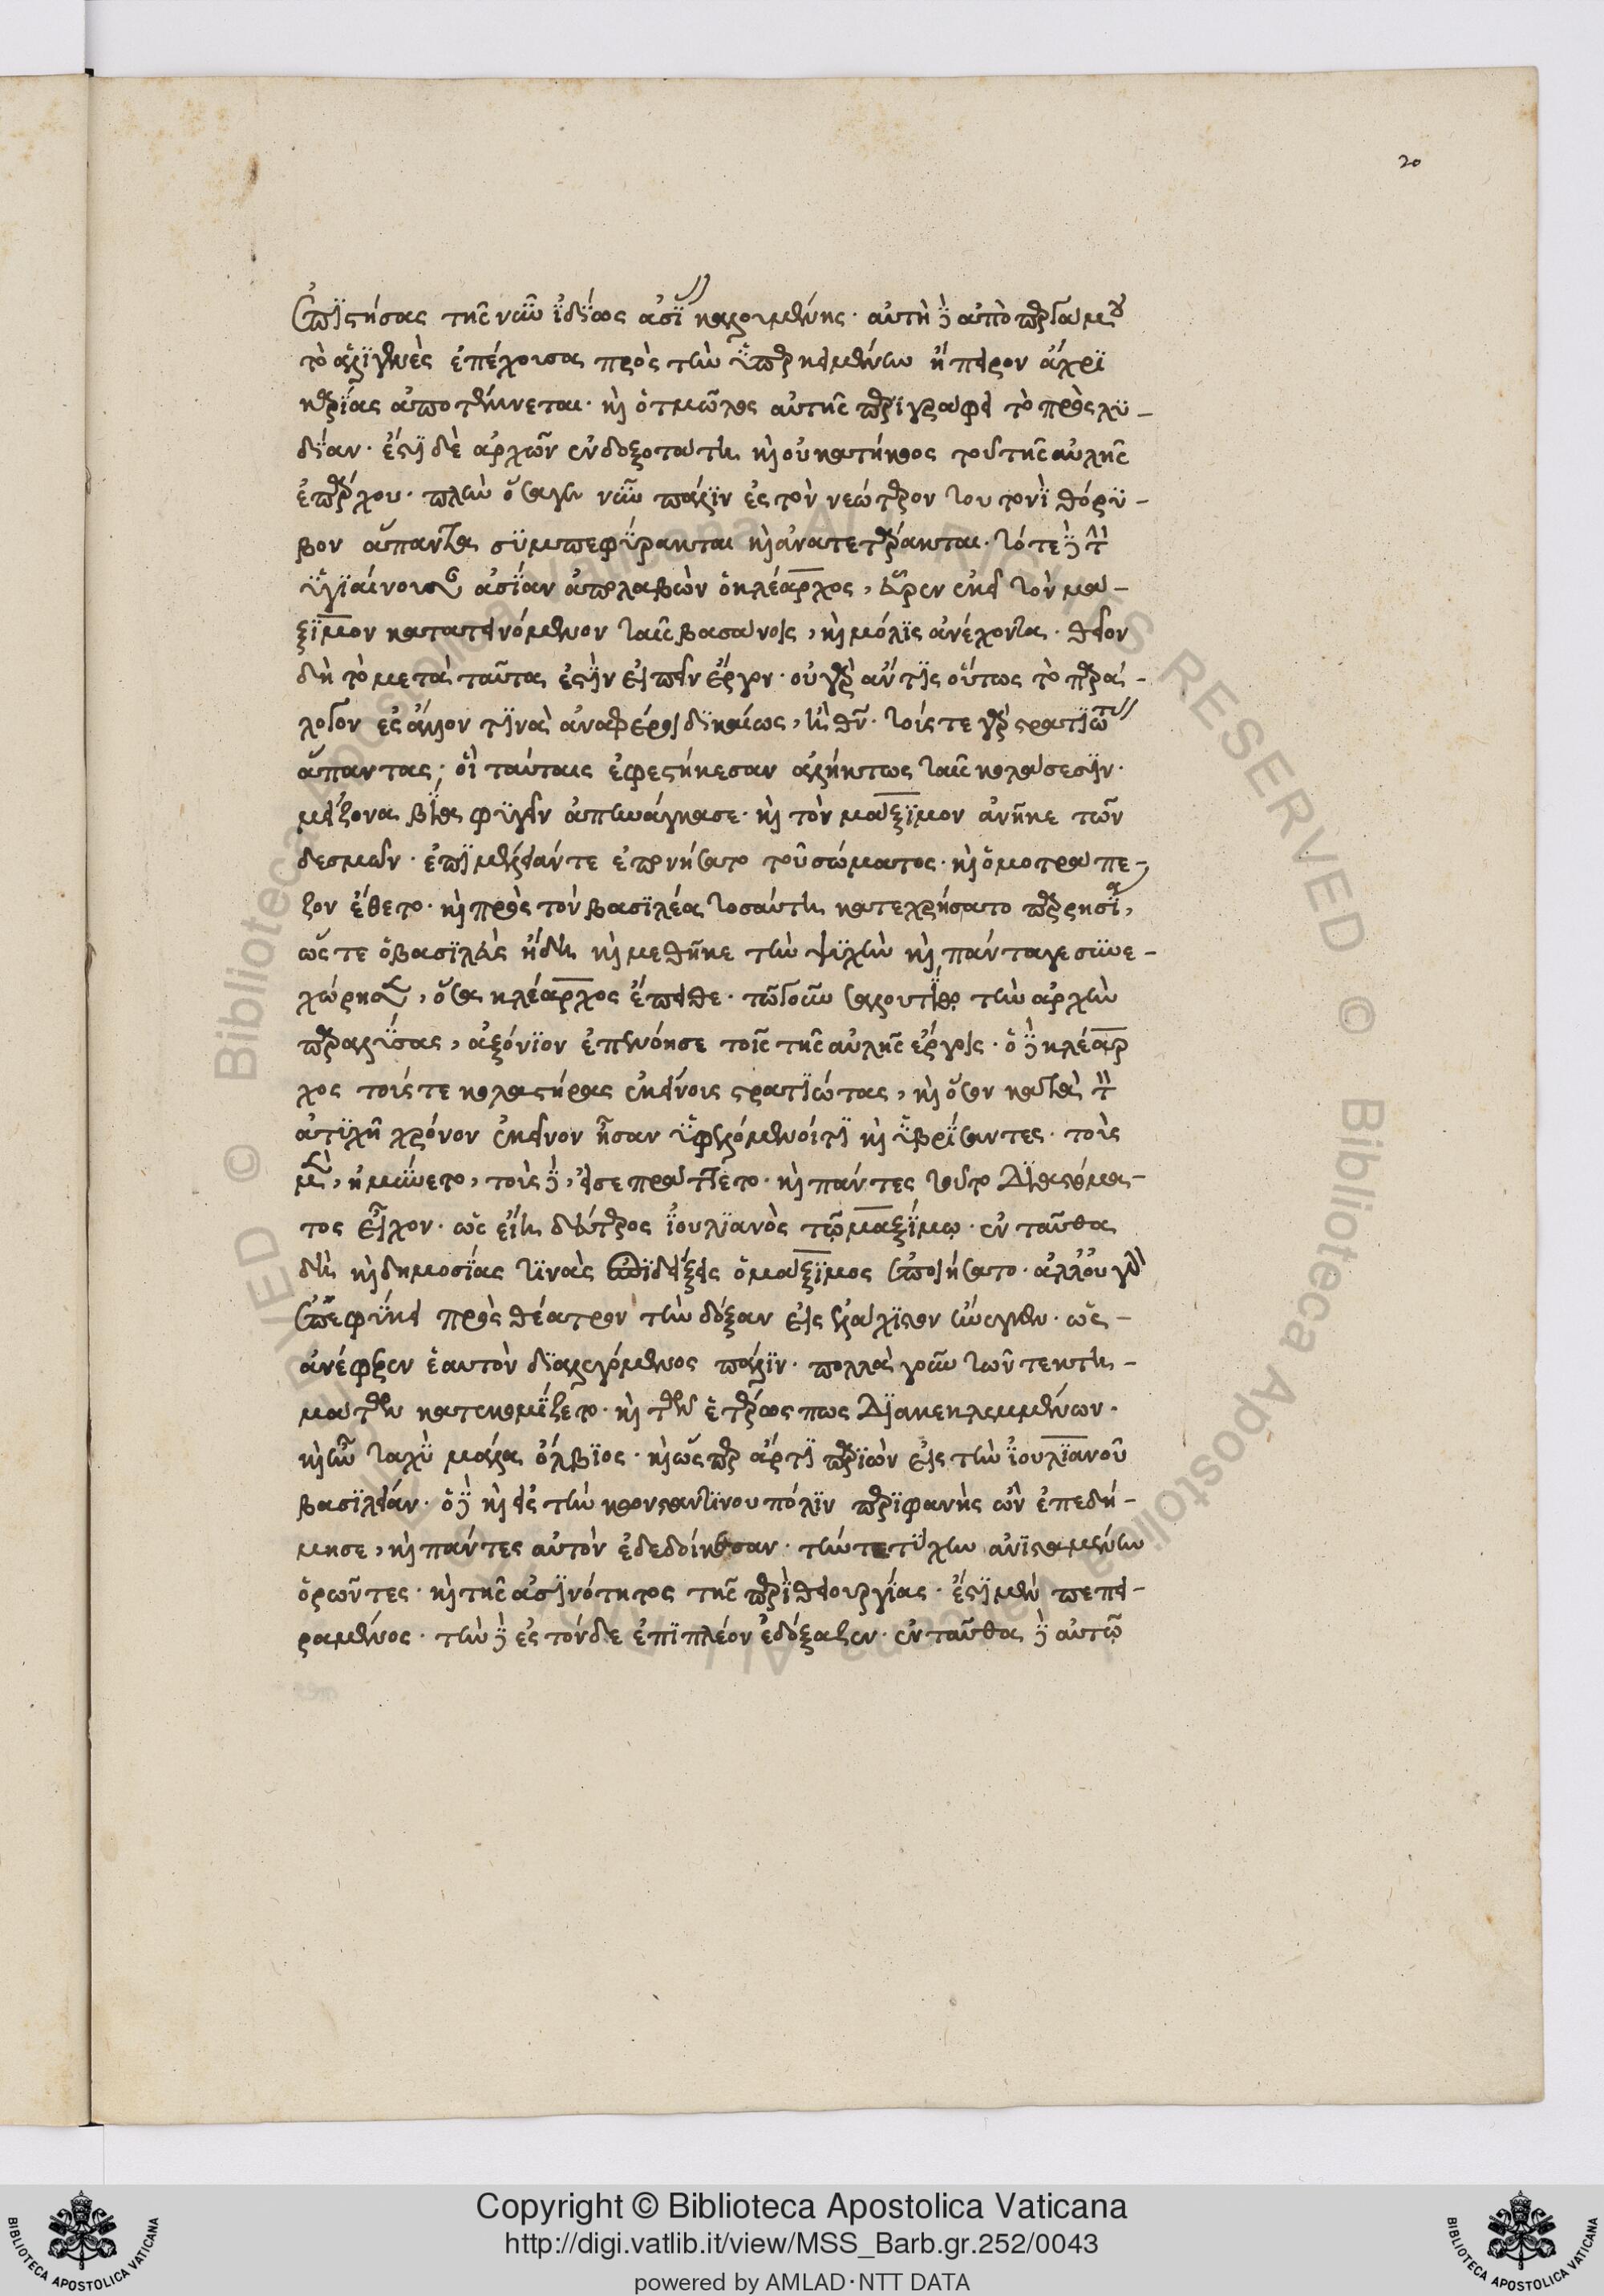 20
ἐπιστήσας τῆς νῦν ἰδίως ἀσίας καλουμένης· αὐτὴ δὲ ἀπὸ περγάμου
τὸ ἁλιγενὲς ἐπέχουσα πρὸς τὴν ὑπερκειμένην ἤπειρον ἄχρι
καρίας ἀποτέμνεται· καὶ ὁ τμῶλος αὐτῆς περιγράφει τὸ πρὸς λυ-
δίαν· ἔστι δὲ ἀρχῶν ἐνδοξοτάτη καὶ οὐ κατήκοος τοῦ τῆς αὐλῆς
ἐπάρχου· πλὴν ὅσα γε νῦν πάλιν ἐς τὸν νεώτερον τουτονὶ θόρυ-
βον ἅπαντα συμπεφύρανται καὶ ἀνατετάρακται· τότε δὲ τὴν
ὑγιαίνουσαν ἀσίαν ἀπολαβὼν ὁ κλέαρχος, εὗρεν ἐκεῖ τὸν μά-
ξιμον κατατεινόμενον ταῖς βασάνοις, καὶ μόλις ἀνέχοντα· θεῖον
δὴ τὸ μετὰ ταῦτα ἐστὶν εἰπεῖν ἔργον· οὐ γὰρ ἄν τις οὕτως τὸ παρά-
λογον εἰς ἄλλον τινὰ ἀναφέροι δικαίως, ἢ θεόν· τούς τε γὰρ στρατιώτας
ἅπαντας, οἳ ταύταις ἐφεστήκεσαν ἀλήκτως ταῖς κολάσεσιν·
μείζονα βίᾳ φυγεῖν ἀπηνάγκασε· καὶ τὸν μάξιμον ἀνῆκε τῶν
δεσμῶν· ἐπιμέλειάν τε ἐποιήσατο τοῦ σώματος· καὶ ὁμοτράπε-
ζον ἔθετο· καὶ πρὸς τὸν βασιλέα τοσαύτῃ κατεχρήσατο παρρησίᾳ,
ὥστε ὁ βασιλεὺς ἤδη καὶ μεθῆκε τὴν ψυχὴν καὶ πάντα γε συνε-
χώρησεν, ὅσα κλέαρχος ἔπειθε· τὸν γοῦν σαλούτιον τὴν ἀρχὴν
παραλύσας, αὐξόνιον ἐπενόησε τοῖς τῆς αὐλῆς ἔργοις· ὁ δὲ κλέαρ
χος τούς τε κολαστῆρας ἐκείνους στρατιώτας, καὶ ὅσοι κατὰ τὸν
ἀτυχῆ χρόνον ἐκεῖνον ἦσαν ὑφελόμενοί τι καὶ ὑβρίσαντες· τοὺς
μὲν, ἠμύνετο, τοὺς δὲ, εἰσεπράττετο· καὶ πάντες τοῦτο διὰ στόμα-
τος εἶχον· ὡς εἴη δεύτερος ἰουλιανὸς τῷ μαξίμῳ· ἐνταῦθα
δὴ καὶ δημοσίας τινὰς ἐπιδείξεις ὁ μάξιμος ἐποιήσατο· ἀλλ' οὐ γὰρ
ἐπεφύκει πρὸς θέατρον τὴν δόξαν εἰς ἐλάχιστον συνῆγεν· ὡς
ἀνέφερεν ἑαυτὸν διαλεγόμενος πάλιν· πολλὰ γοῦν τῶν τε κτη-
μάτων κατεκομίζετο· καὶ τῶν ἑτέρως πως διακεκλεμμένων·
καὶ ἦν ταχὺ μάλα ὄλβιος· καὶ ὥσπερ ἄρτι παριὼν εἰς τὴν ἰουλιανοῦ
βασιλείαν· ὁ δὲ καὶ εἰς τὴν κωνσταντίνου πόλιν περιφανὴς ὢν ἐπεδή-
μησε, καὶ πάντες αὐτὸν ἐδεδοίκεσαν· τήν τε τύχην ἀνισταμένην
ὁρῶντες· καὶ τῆς ἀσινότητος τῆς περὶ θειουργίας· ἔστι μὲν πεπει-
ραμένος· τὴν δὲ ἐς τόνδε ἐπὶ πλέον ἐδόξαζεν· ἐνταῦθα δὲ αὐτῷ
Copyright © Biblioteca Apostolica Vaticana
http://digi.vatlib.it/view/MSS_Barb.gr.252/0043
powered by AMLAD·NTT DATA